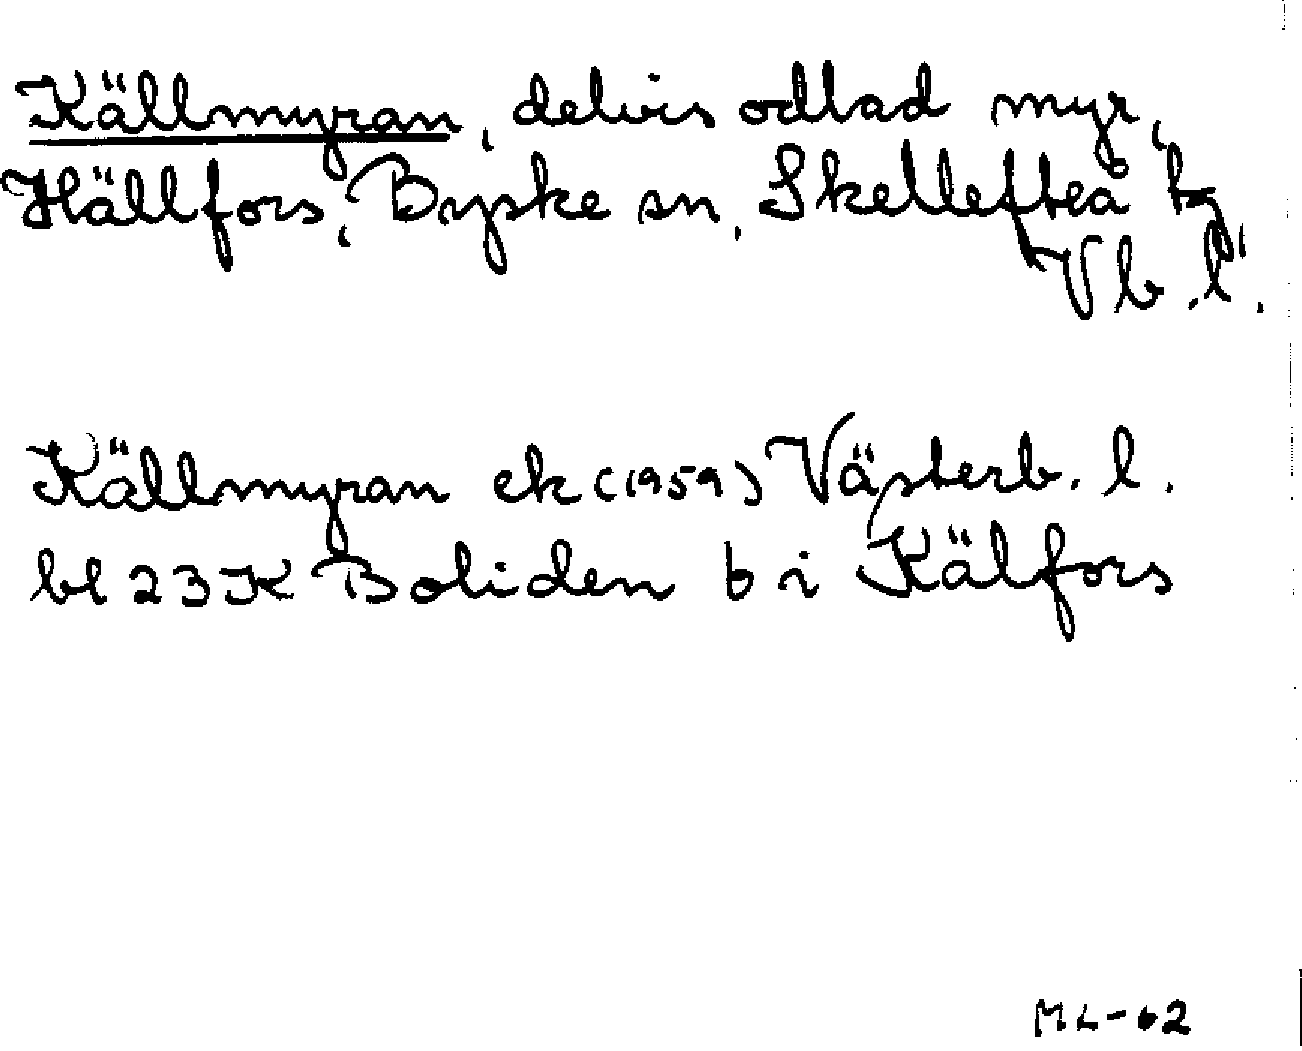 Källmyran, delvis odlad myr,
Hällfors, Byske sn, Skellefteå tg,
Vb.l.
Källmyran ek (1959) Västerb. l.
bl 23K Boliden b i Källfors
ML-62